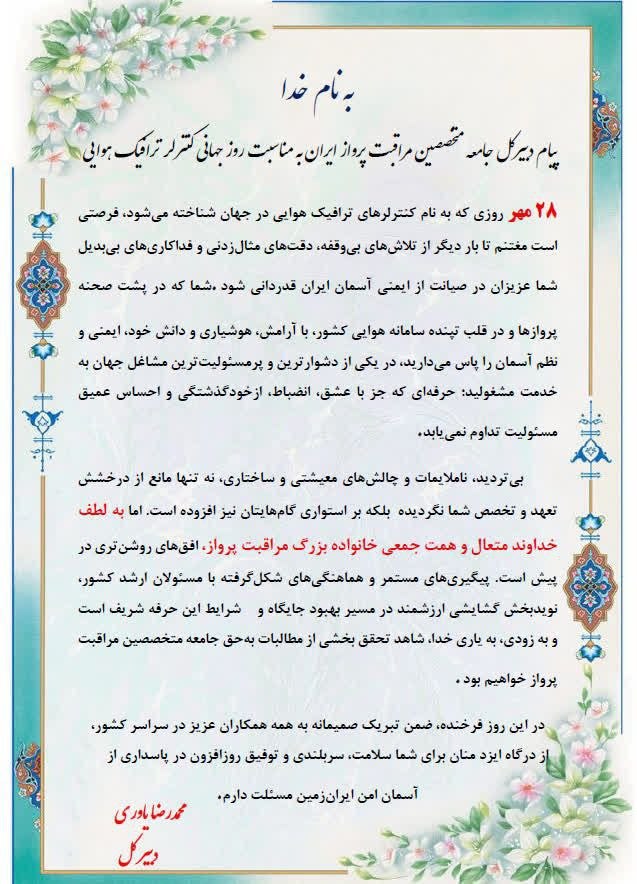 به نام خدا
پیام دبیرکل جامعه متخصصین مراقبت پرواز ایران به مناسبت روز جهانی کنترلر ترافیک هوایی
۲۸ مهر روزی که به نام کنترلرهای ترافیک هوایی در جهان شناخته می‌شود، فرصتی
است مغتنم تا بار دیگر از تلاش‌های بی‌وقفه، دقت‌های مثال‌زدنی و فداکاری‌های بی‌بدیل
شما عزیزان در صیانت از ایمنی آسمان ایران قدردانی شود .شما که در پشت صحنه
پروازها و در قلب تپنده سامانه هوایی کشور، با آرامش، هوشیاری و دانش خود، ایمنی و
نظم آسمان را پاس می‌دارید، در یکی از دشوارترین و پرمسئولیت‌ترین مشاغل جهان به
خدمت مشغولید؛ حرفه‌ای که جز با عشق، انضباط، ازخودگذشتگی و احساس عمیق
مسئولیت تداوم نمی‌یابد.
بی‌تردید، ناملایمات و چالش‌های معیشتی و ساختاری، نه تنها مانع از درخشش
تعهد و تخصص شما نگردیده بلکه بر استواری گام‌هایتان نیز افزوده است. اما به لطف
خداوند متعال و همت جمعی خانواده بزرگ مراقبت پرواز، افق‌های روشن‌تری در
پیش است. پیگیری‌های مستمر و هماهنگی‌های شکل‌گرفته با مسئولان ارشد کشور،
نویدبخش گشایشی ارزشمند در مسیر بهبود جایگاه و شرایط این حرفه شریف است
و به زودی، به یاری خدا، شاهد تحقق بخشی از مطالبات به‌حق جامعه متخصصین مراقبت
پرواز خواهیم بود .
در این روز فرخنده، ضمن تبریک صمیمانه به همه همکاران عزیز در سراسر کشور،
از درگاه ایزد منان برای شما سلامت، سربلندی و توفیق روزافزون در پاسداری از
آسمان امن ایران‌زمین مسئلت دارم.
محمدرضا یاوری
دبیرکل